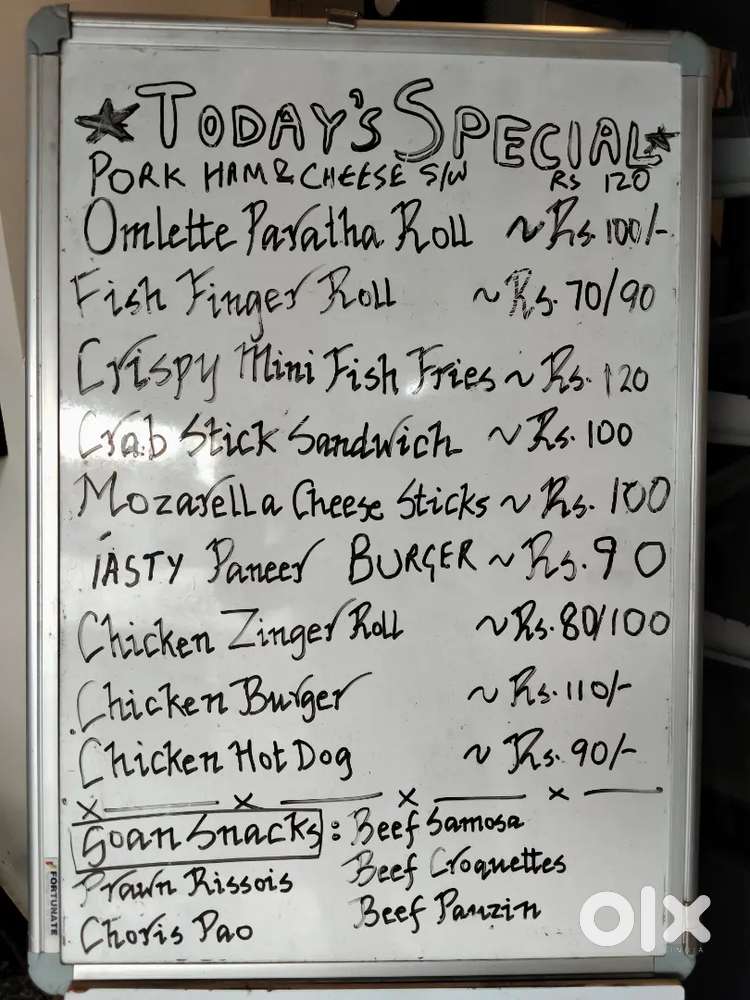 TODAY'S SPECIAL
PORK HAM & CHEESE S/W RS 120
Omlette Paratha Roll ~ Rs. 100/-
Fish Finger Roll ~ Rs. 70/90
Crispy Mini Fish Fries ~ Rs. 120
Crab Stick Sandwich ~ Rs. 100
Mozarella Cheese Sticks ~ Rs. 100
TASTY Paneer BURGER ~ Rs. 90
Chicken Zinger Roll ~ Rs. 80/100
Chicken Burger ~ Rs. 110/-
Chicken Hot Dog ~ Rs. 90/-
Goan Snacks : Beef Samosa
Prawn Rissois Beef Croquettes
Choris Pao Beef Panzin
FORTUNATE
olx